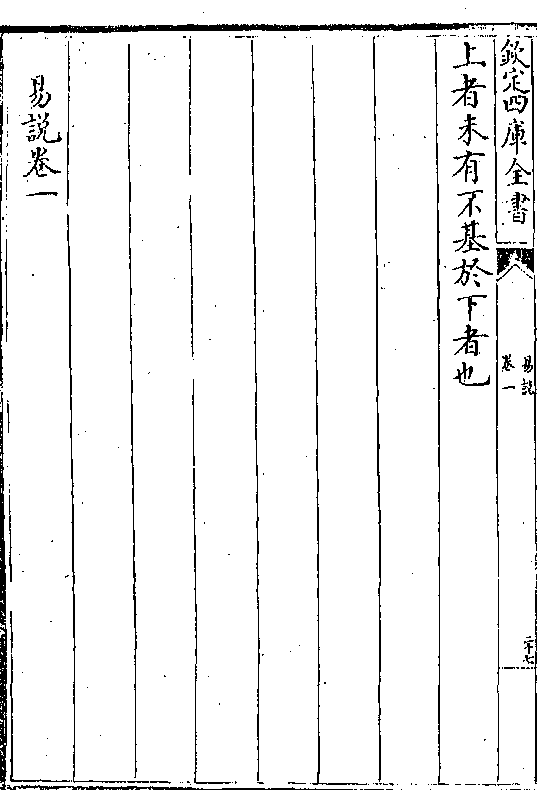 欽定四庫全書
易說
卷一
二十七
上者未有不基於下者也
易說卷一